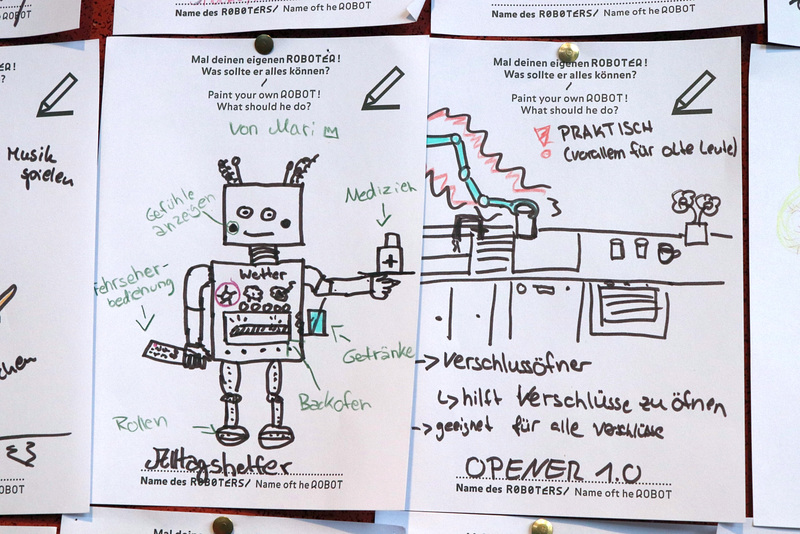 Name des ROBOTERS/ Name of the ROBOT
Name des ROBOTERS/ Name of the ROBOT
Musik
spielen
Mal deinen eigenen ROBOTER!
Was sollte er alles können?
/
Paint your own ROBOT!
What should he do?
von Mari
Gefühle
anzeigen
Medizien
Fehrseher-
bediehung
Wetter
Getränke
Backofen
Rollen
Alltagshelfer
Name des ROBOTERS/ Name of the ROBOT
Mal deinen eigenen ROBOTER!
Was sollte er alles können?
/
Paint your own ROBOT!
What should he do?
PRAKTISCH
(vorallem für alte Leute)
-> Verschlussöfner
↳ hilft Verschlüsse zu öfnen
-> geeignet für alle Verschlüsse
OPENER 1.0
Name des ROBOTERS/ Name of the ROBOT
ROBOT